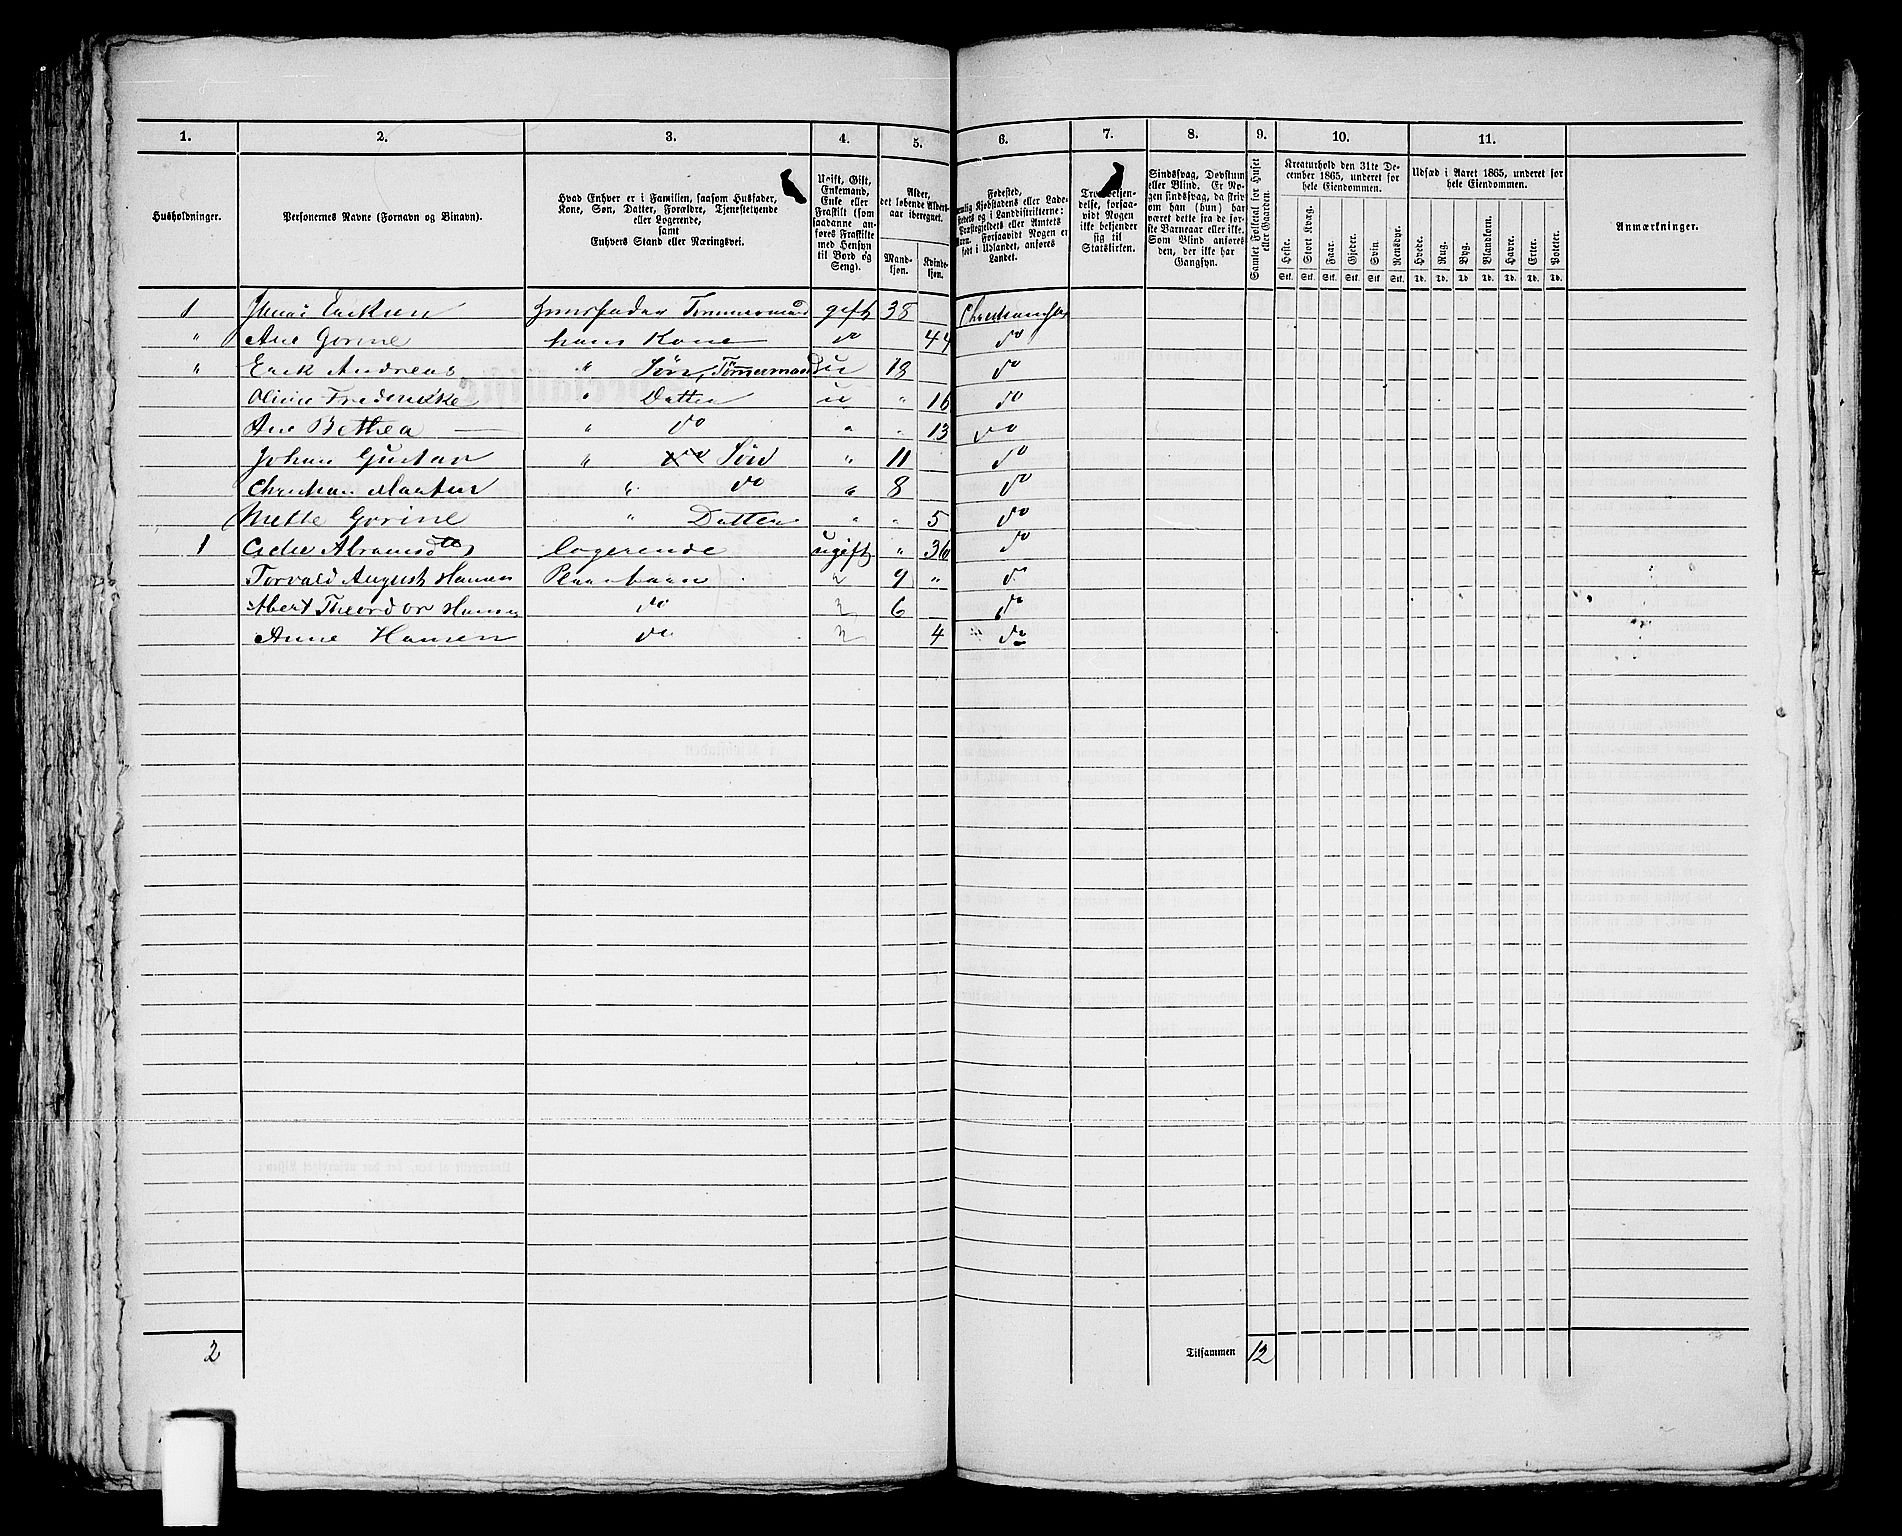 1. 2. 3. 4. 5. 6. 7. 8. 9. 10. 11.
Husholdninger.
Personernes Navne (Fornavn og Binavn).
Hvad Enhver er i Familien, saasom Husfader,
Kone, Søn, Datter, Forældre, Tjenestetyende
eller Logerende,
samt
Enhvers Stand eller Næringsvei.
Ugift, Gift,
Enkemand,
Enke eller
Fraskilt (som
saadanne an-
føres Fraskilte
med Hensyn
til Bord og
Seng).
Alder,
det løbende Alders-
aar iberegnet.
Mand-
kjøn.
Kvinde-
kjøn.
Fødested,
Kjøbstadens eller Lade-
stedets og i Landdistrikterne:
Præstegjeldets eller Amtets
Navn. Forsaavidt Nogen er
født i Udlandet, anføres
Landet.
Troesbekjen-
delse, forsaa-
vidt Nogen
ikke bekjender
sig til
Statskirken.
Sindssvag, Døvstum
eller Blind. Er No-
gen sindssvag, da skriv
om han (hun) har
været dette fra de før-
ste Barneaar eller ikke.
Som Blind anføres
den, der ikke har
Gangsyn.
Samlet Folketal for Huset
eller Gaarden.
Kreaturhold den 31te De-
cember 1865, underet for
hele Eiendommen.
Heste. Stort Kvæg. Faar. Gjeder. Svin. Rensdyr.
Stk. Stk. Stk. Stk. Stk. Stk.
Udsæd i Aaret 1865, underet for
hele Eiendommen.
Hvede. Rug. Byg. Blandkorn. Havre. Erter. Poteter.
Td. Td. Td. Td. Td. Td. Td.
Anmærkninger.
1 Ericksen Huusfader Tømmermand gift 38
" Ane Gorine hans Kone do 44 do
" Erik Andreas " Søn, Tømmermand u 18 do
Olivie Frederikke " Datter u " 16 do
Ane Bethea — " do " " 13 do
Johan Gustav " do Søn " 11 do
Christian Martin " do " 8 do
Mette Gorine " Datter " " 5 do
1 Abramsdtr logerende ugift " 36 do
Torvald August Hansen 9 " do
Theordor Hansen do 6 do
Anne Hansen do 4 do
2 Tilsammen 12